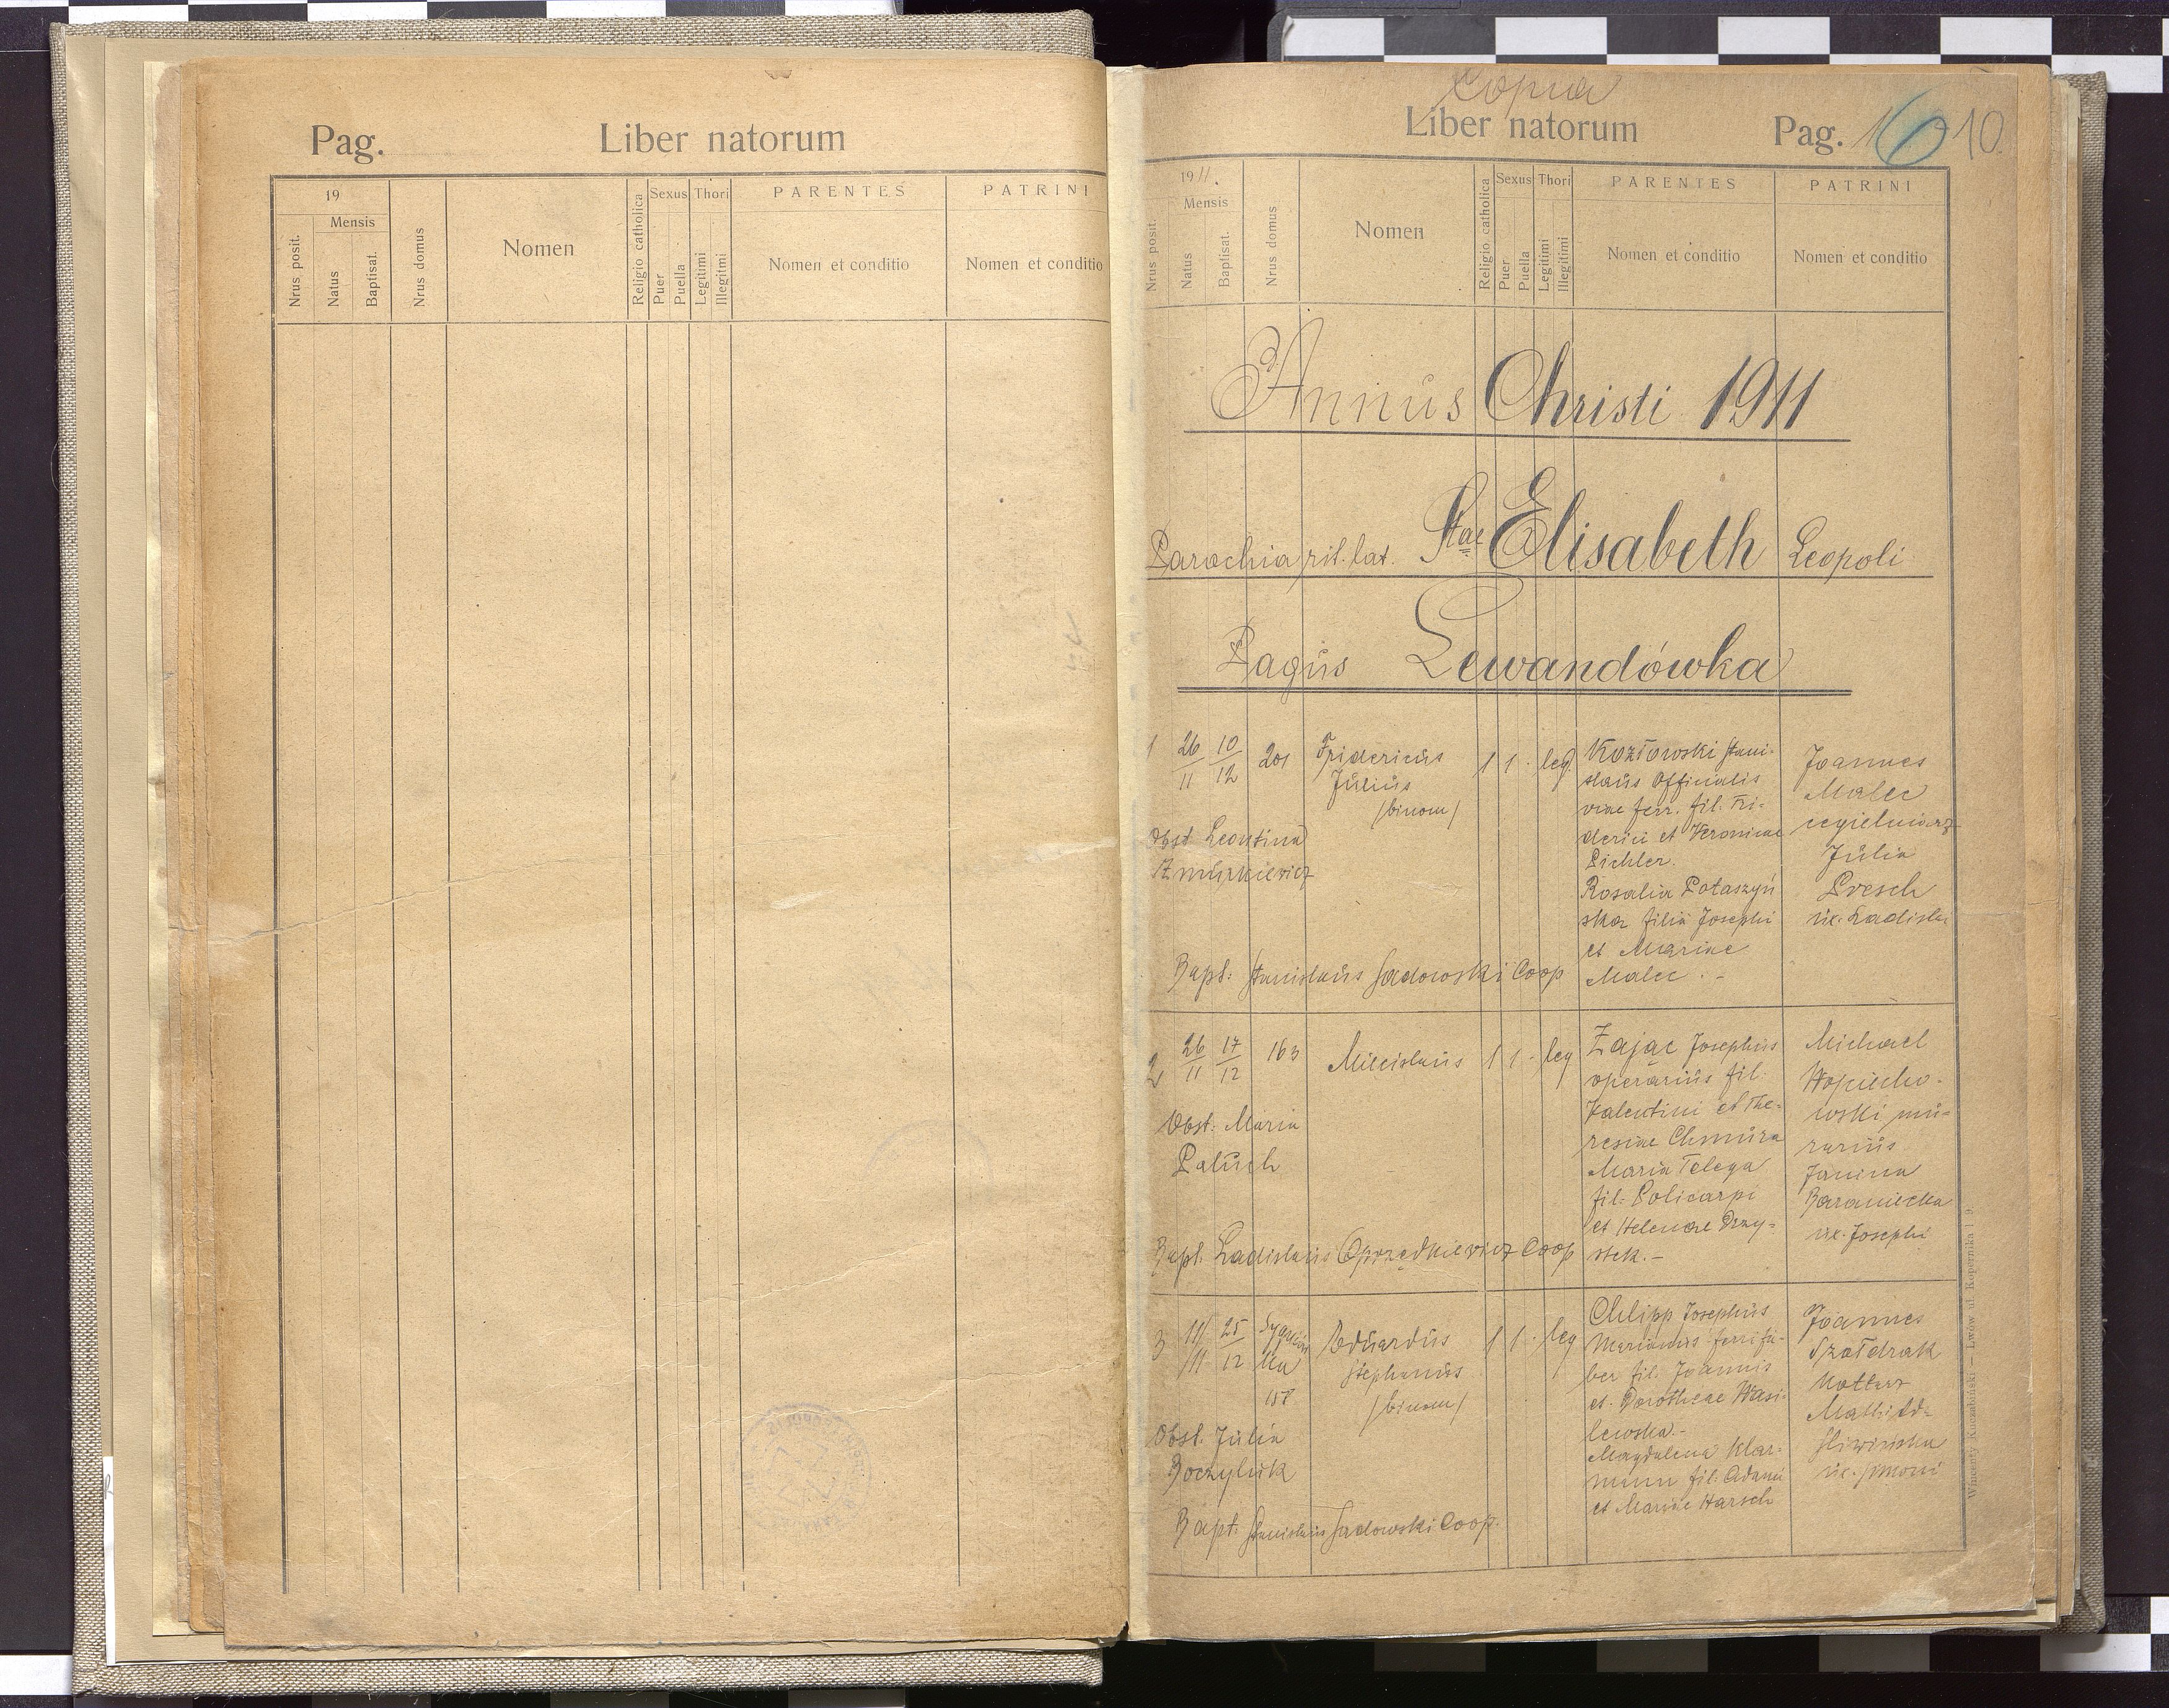 Pag.
Liber natorum
19
Mensis
Nrus posit.
Natus
Baptisat.
Nrus domus
Nomen
Religio catholica
Sexus
Puer
Puella
Thori
Legitimi
Illegitmi
PARENTES
Nomen et conditio
PATRINI
Nomen et conditio
Copia
Liber natorum
Pag. 10.
1911.
Mensis
Nrus posit.
Natus
Baptisat.
Nrus domus
Nomen
Religio catholica
Sexus
Puer
Puella
Thori
Legitimi
Illegitimi
PARENTES
Nomen et conditio
PATRINI
Nomen et conditio
Annus Christi 1911
Parochia rit. lat. Stae Elisabeth Leopoli
Pagus Lewandówka
1 26/11 10/12 201
Fridericus
Julius
/binom/
1 1 · leg.
Kozłowski Stani-
slaus Officialis
viae ferr. fil. Fri-
derici et Veronicae
Pichler.
Rosalia Potaszyń
ska filia Josephi
et Mariae
Malec . -
Joannes
Malec
cegielniarz
Julia
Presch
ux. Ladislai
Obst. Leontina
Żmurkiewicz
Bapt: Stanislaus Sadowski Coop
2 26/11 17/12 163
Miecislaus
1 1 · leg
Zając Josephus
operarius fil.
Valentini et The-
resiae Chmura
Maria Telega
fil. Policarpi
et Helenae Drzy-
stek. -
Michael
Wojciecho-
wski mu-
rarius
Janina
Baraniecka
ux. Josephi
Obst: Maria
Paluch
Bapt. Ladislaus Oprządkiewicz Coop
3 11/11 25/12 Sygniów
ka
158
Eduardus
Stephanus
/binom/
1 1 · leg
Chilipp Josephus
Marianus ferri fa-
ber fil. Joannis
et Dorotheae Wasi-
lewska. -
Magdalena Klar-
mann fil. Adami
et Mariae Harsch
Joannes
Szałdrak
Mathild
Śliwińska
ux. Simoni
Obst. Julia
Boczyluk
Bapt. Stanislaus Sadowski Coop.
Wincenty Kuczabiński — Lwów ul. Kopernika l. 9.